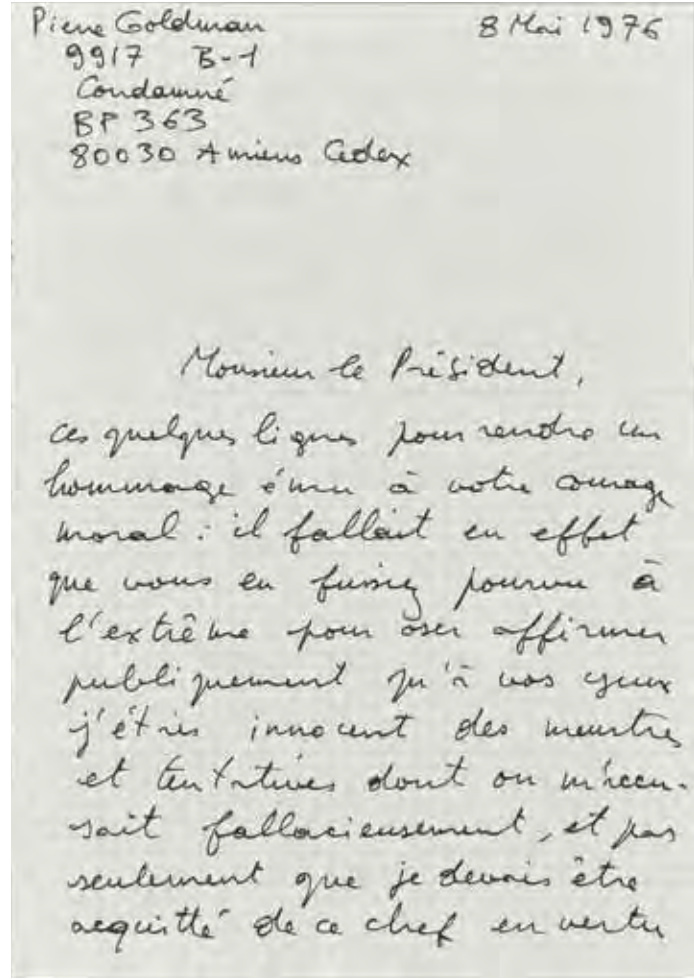 Pierre Goldman 8 Mai 1976
9917 B-1
Condamné
BP 363
80030 Amiens Cedex
Monsieur le Président,
ces quelques lignes pour rendre un
hommage ému à votre courage
moral : il fallait en effet
que vous en fussiez pourvu à
l'extrême pour oser affirmer
publiquement qu'à vos yeux
j'étais innocent des meurtres
et tentatives dont on m'accu-
sait fallacieusement, et pas
seulement que je devais être
acquitté de ce chef en vertu